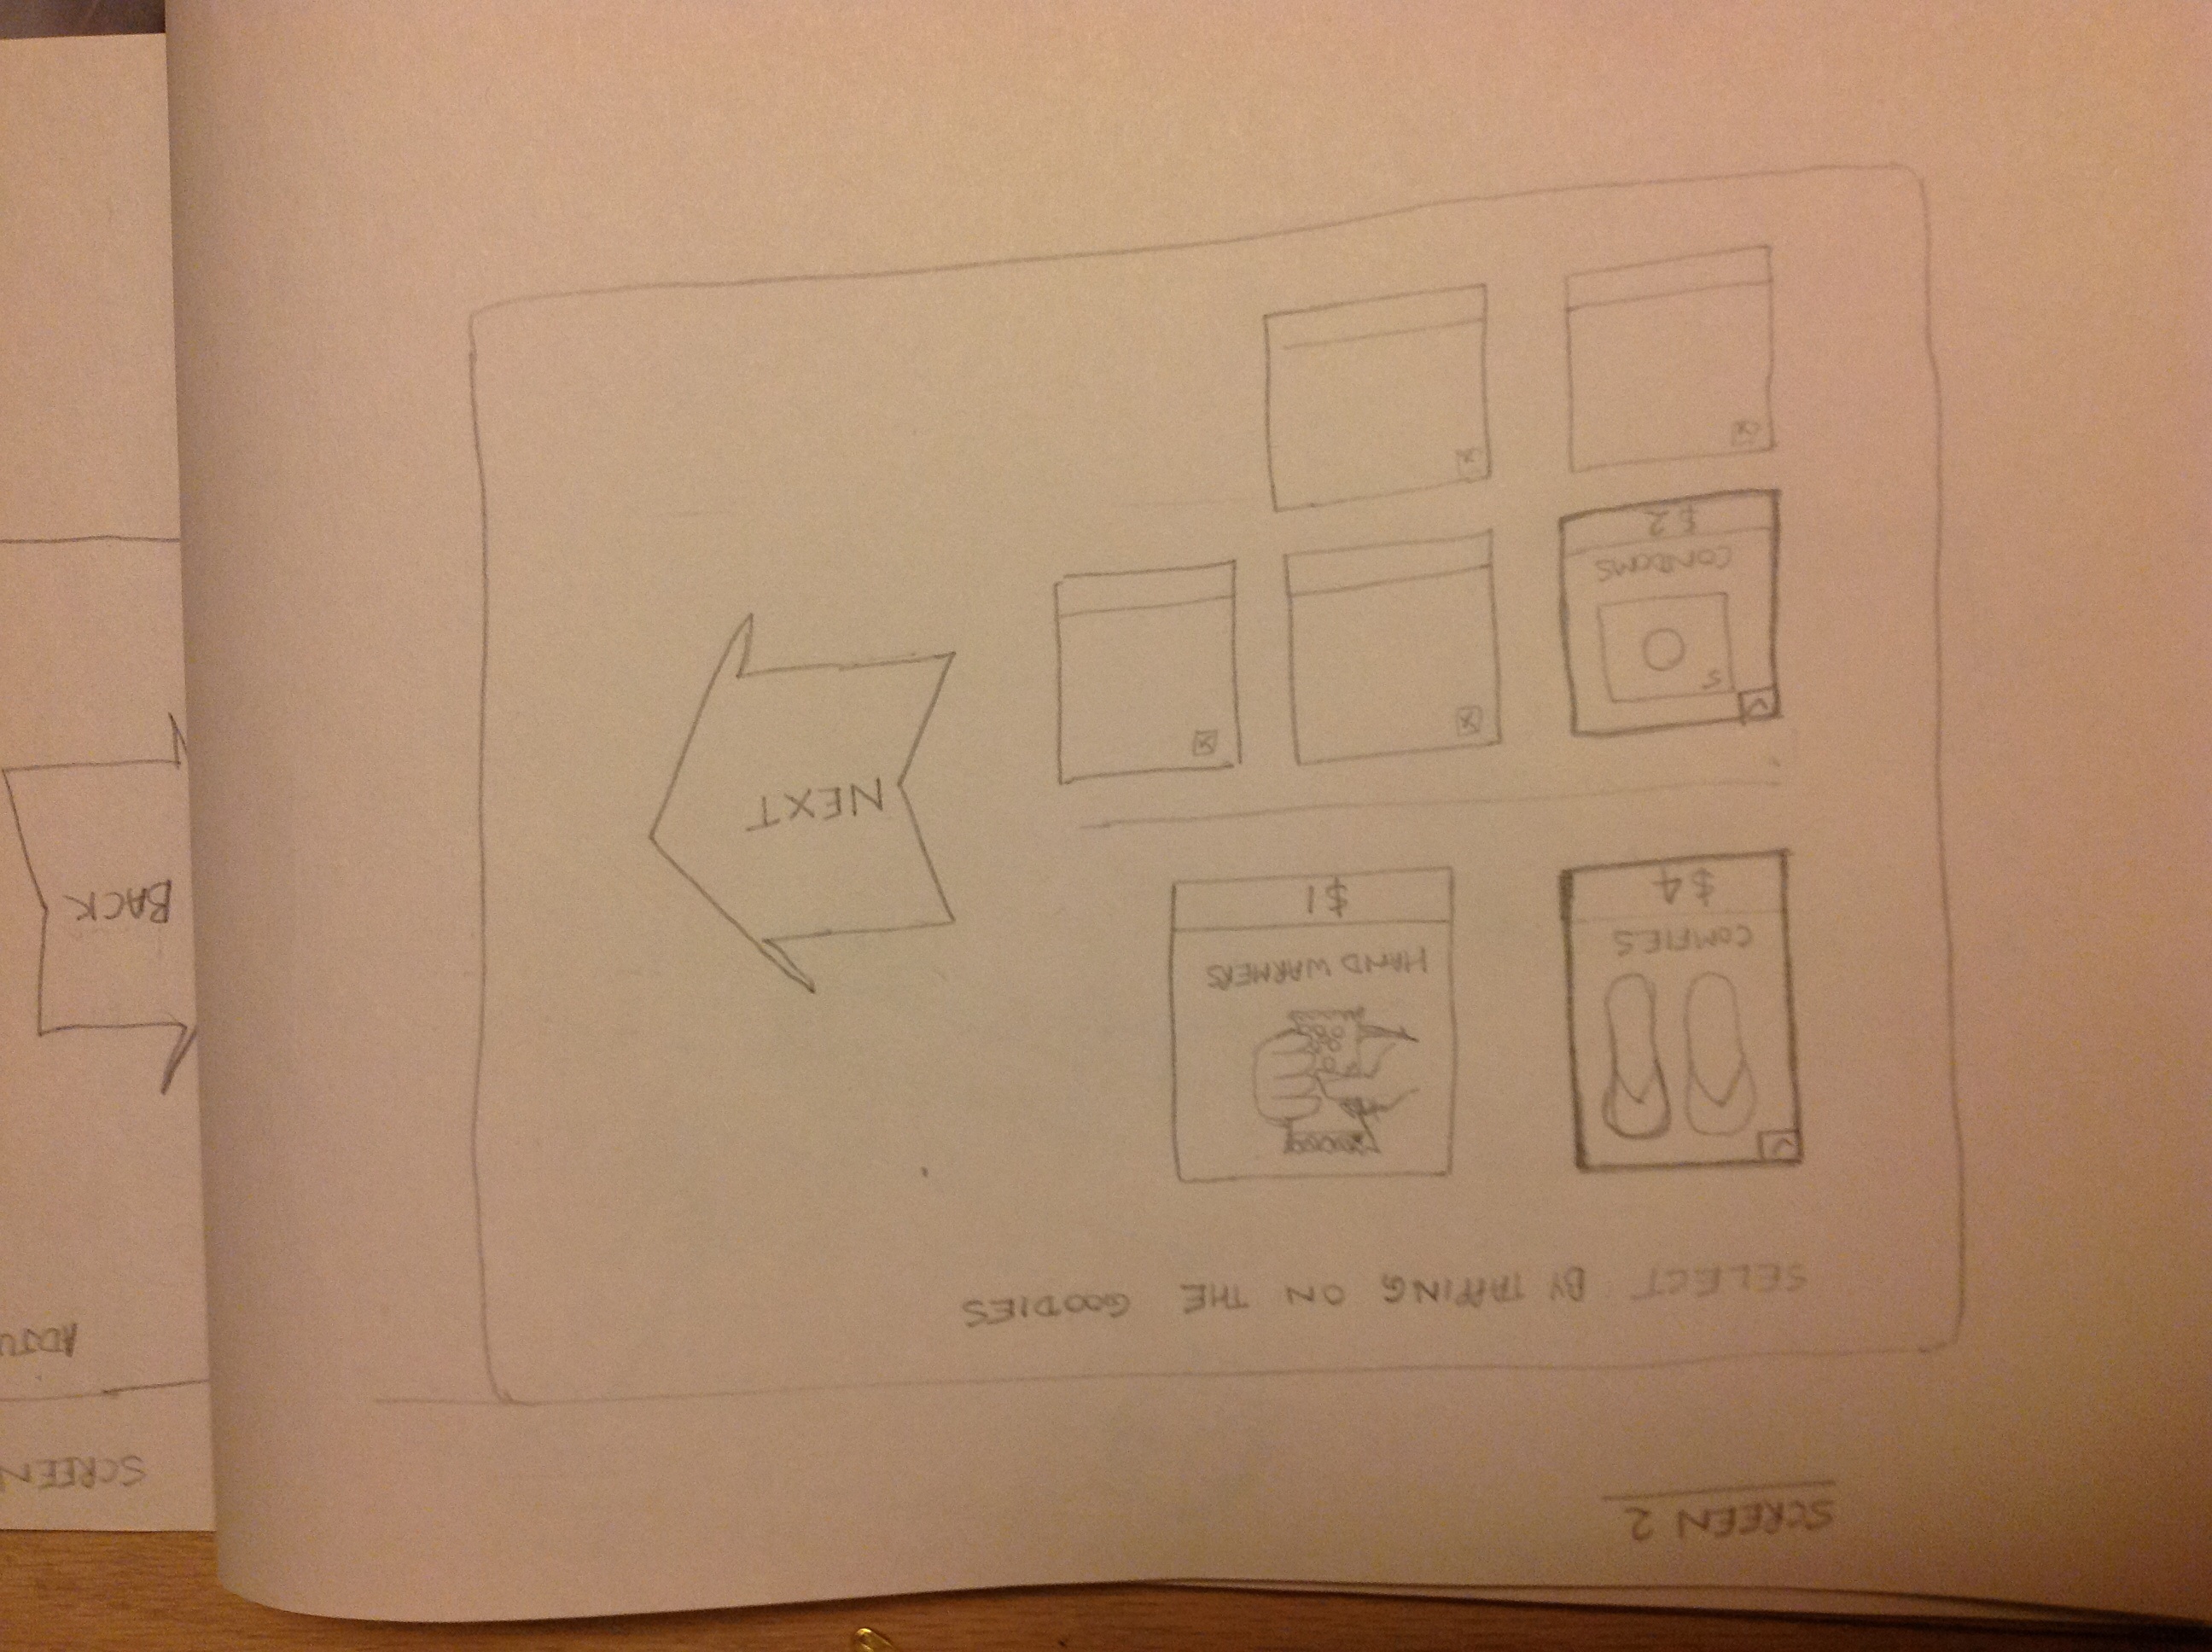 SCREEN 2
SELECT BY TAPPING ON THE GOODIES
COMFIES
$4
HAND WARMERS
$1
NEXT
S
CONDOMS
$2
SCREEN
ADJU
BACK